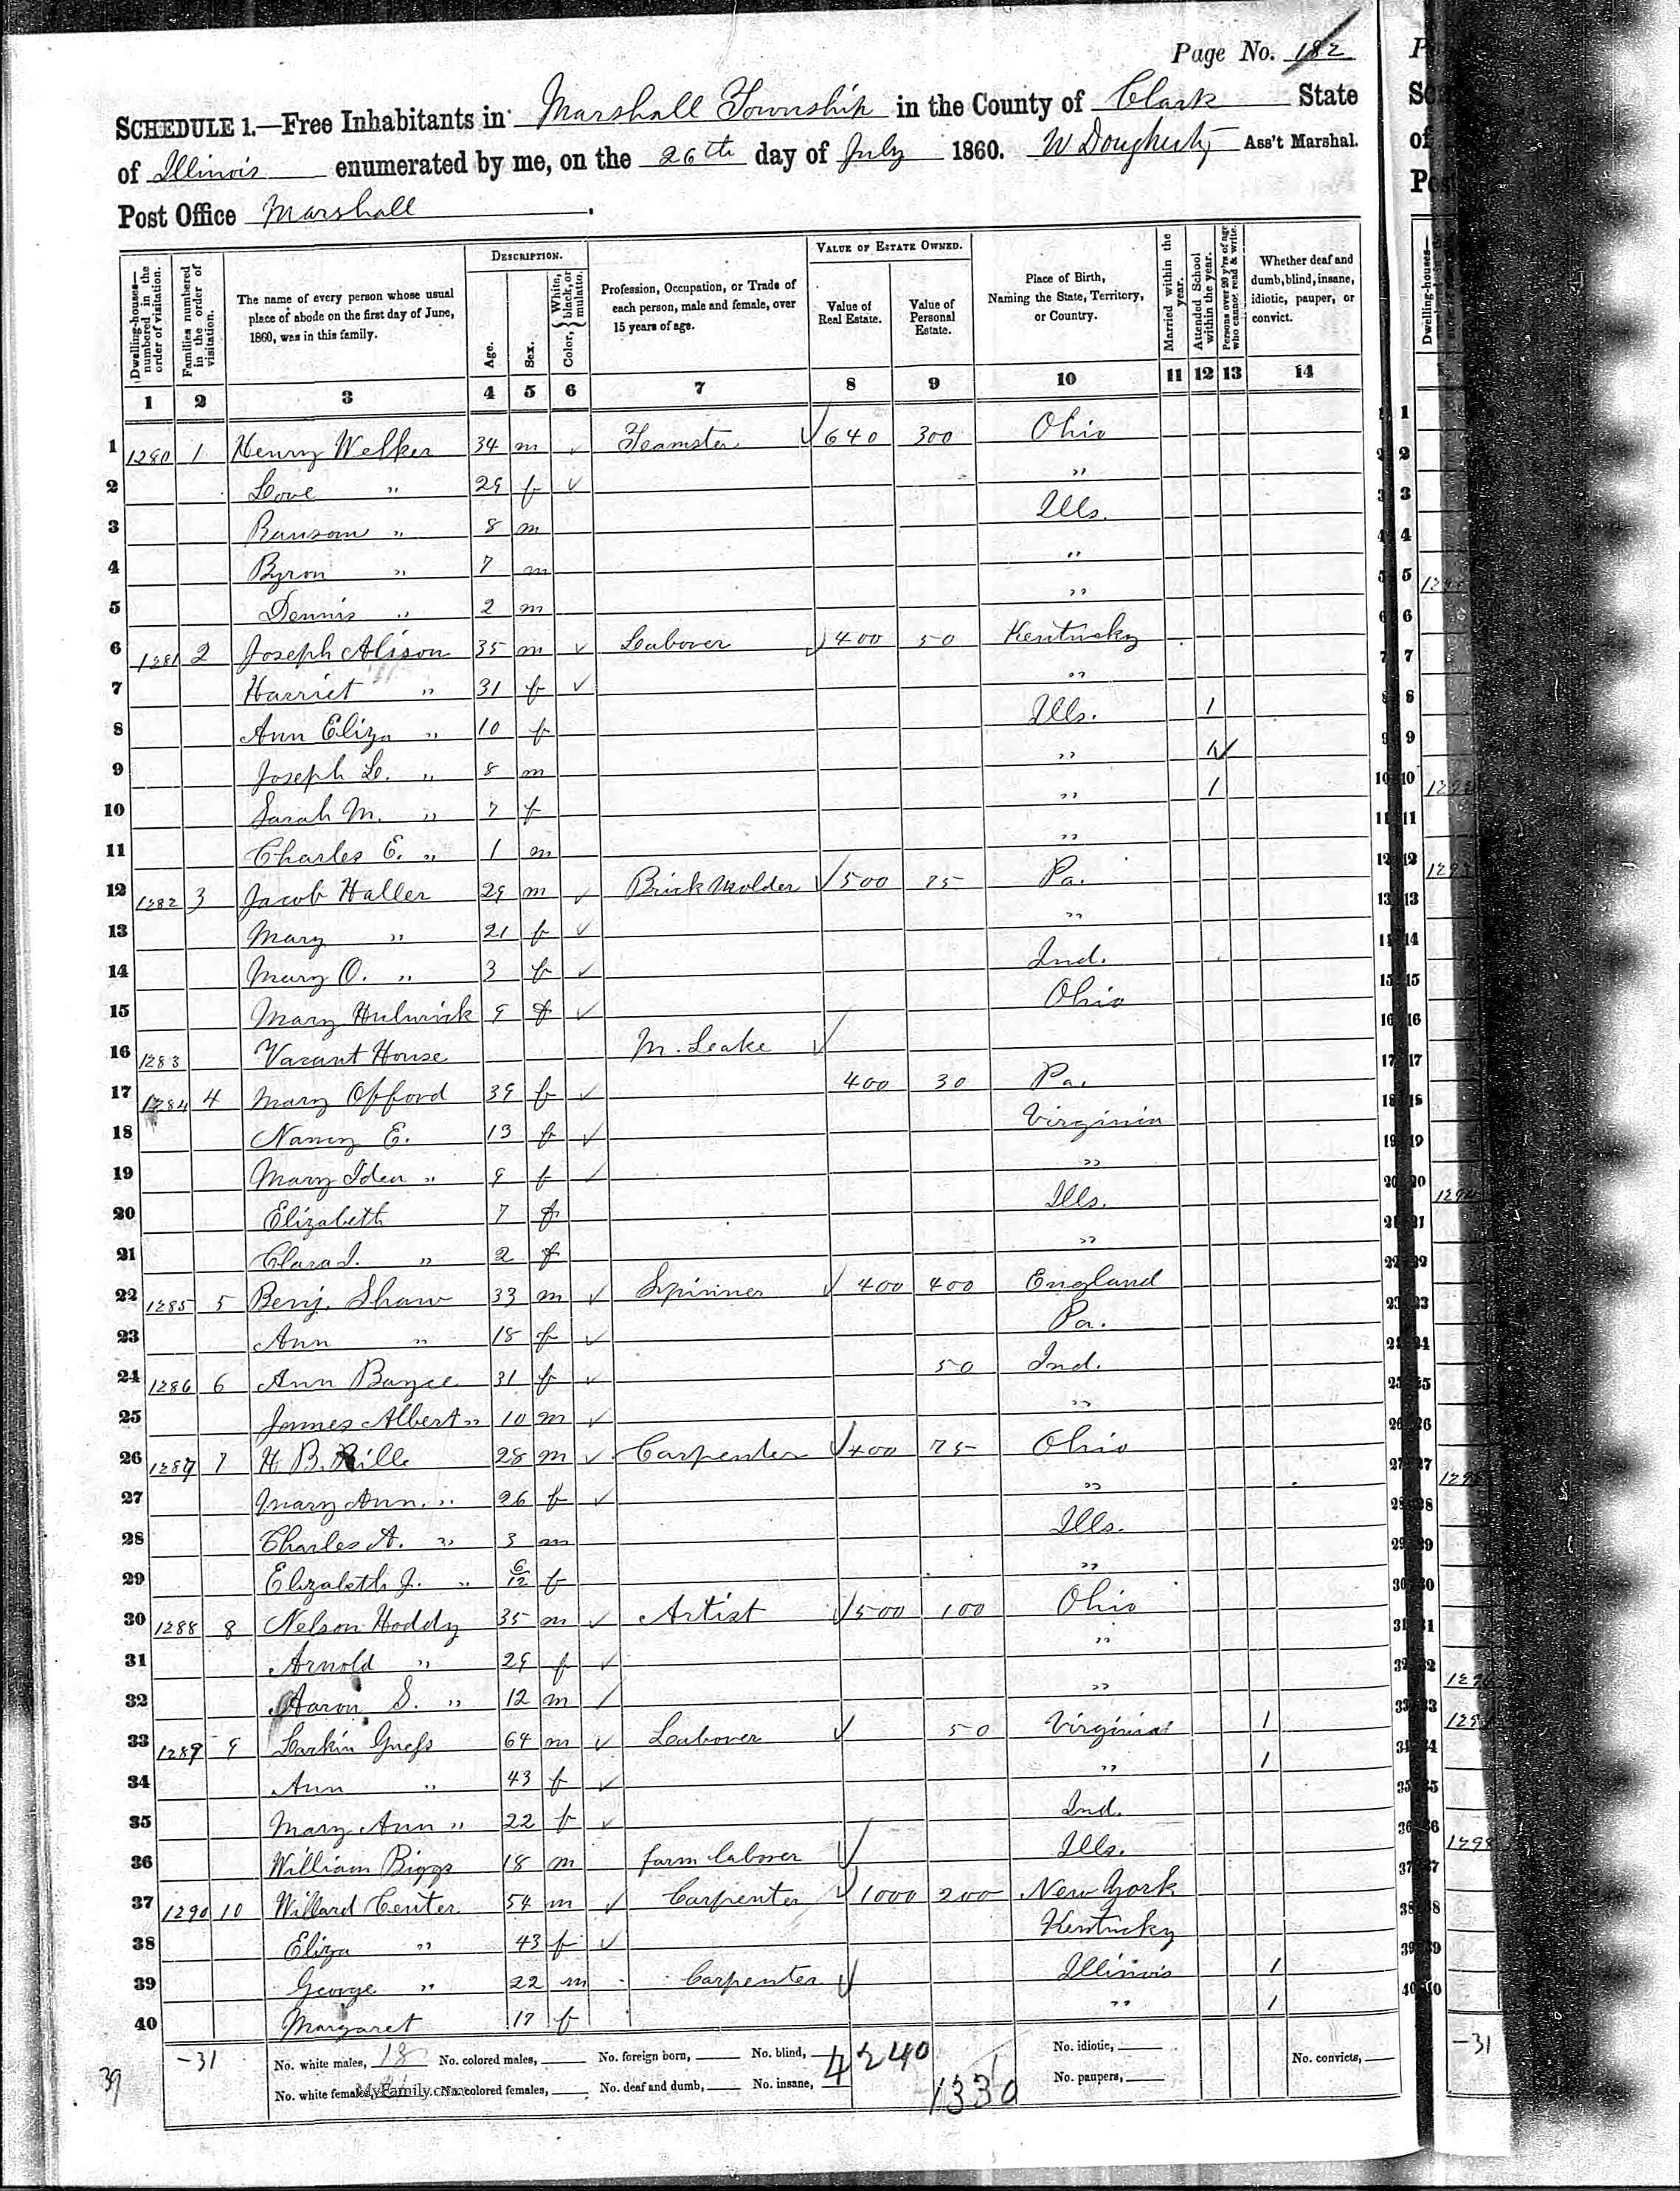 Page No. 182
SCHEDULE 1.—Free Inhabitants in Marshall Township in the County of Clark State
of Illinois enumerated by me, on the 26th day of July 1860. W Dougherty Ass't Marshal.
Post Office Marshall.
Dwelling-houses—numbered in the order of visitation.
Families numbered in the order of visitation.
The name of every person whose usual place of abode on the first day of June, 1860, was in this family.
DESCRIPTION.
Age.
Sex.
Color, { White, black, or mulatto.
Profession, Occupation, or Trade of each person, male and female, over 15 years of age.
VALUE OF ESTATE OWNED.
Value of Real Estate.
Value of Personal Estate.
Place of Birth, Naming the State, Territory, or Country.
Married within the year.
Attended School within the year.
Persons over 20 y'rs of age who cannot read & write.
Whether deaf and dumb, blind, insane, idiotic, pauper, or convict.
1 2 3 4 5 6 7 8 9 10 11 12 13 14
1 1280 1 Henry Welker 34 m ✓ Teamster ✓ 640 300 Ohio
2 Love " 29 f ✓ "
3 Ransom " 8 m Ills.
4 Byron " 7 m "
5 Dennis " 2 m "
6 1281 2 Joseph Alison 35 m ✓ Labover ✓ 400 50 Kentucky
7 Harriet " 31 f ✓ "
8 Ann Eliza " 10 f Ills. 1
9 Joseph L. " 8 m " 1✓
10 Sarah M. " 7 f " 1
11 Charles E. " 1 m "
12 1282 3 Jacob Haller 29 m ✓ Brick Molder ✓ 500 75 Pa.
13 Mary " 21 f ✓ "
14 Mary O. " 3 f ✓ Ind.
15 Mary Hulwick 9 f ✓ Ohio
16 1283 Vacant House M. Leake ✓
17 1284 4 Mary Offord 39 f ✓ 400 30 Pa.
18 Nancy E. 13 f ✓ Virginia
19 Mary Iden " 9 f ✓ "
20 Elizabeth 7 f Ills.
21 Clara I. " 2 f "
22 1285 5 Benj. Shaw 33 m ✓ Spinner ✓ 400 400 England
23 Ann " 18 f ✓ Pa.
24 1286 6 Ann Bayce 31 f ✓ 50 Ind.
25 James Albert " 10 m ✓ "
26 1287 7 H. B. Rille 28 m ✓ Carpenter ✓ 400 75 Ohio
27 Mary Ann. " 26 f ✓ "
28 Charles A. " 3 m Ills.
29 Elizabeth J. " 6/12 f "
30 1288 8 Nelson Hoddy 35 m ✓ Artist ✓ 500 100 Ohio
31 Arnold " 29 f ✓ "
32 Aaron S. " 12 m / "
33 1289 9 Larkin Guess 64 m ✓ Labover ✓ 50 Virginia 1
34 Ann " 43 f ✓ " 1
35 Mary Ann " 22 f ✓ Ind.
36 William Biggs 18 m farm labover ✓ Ills.
37 1290 10 Willard Center 54 m ✓ Carpenter ✓ 1000 200 New York
38 Eliza " 43 f ✓ Kentucky
39 George " 22 m Carpenter ✓ Illinois 1
40 Margaret 17 f " 1
39 -31 No. white males, 18 No. colored males, No. foreign born, No. blind, 4240 No. idiotic, No. convicts,
No. white females, No. colored females, No. deaf and dumb, No. insane, 1330 No. paupers,
MyFamily.com
-31